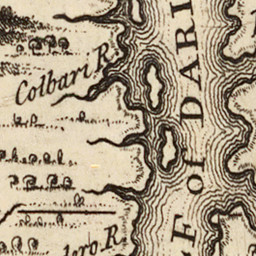 Colbari R.
of DARI
lero. R.